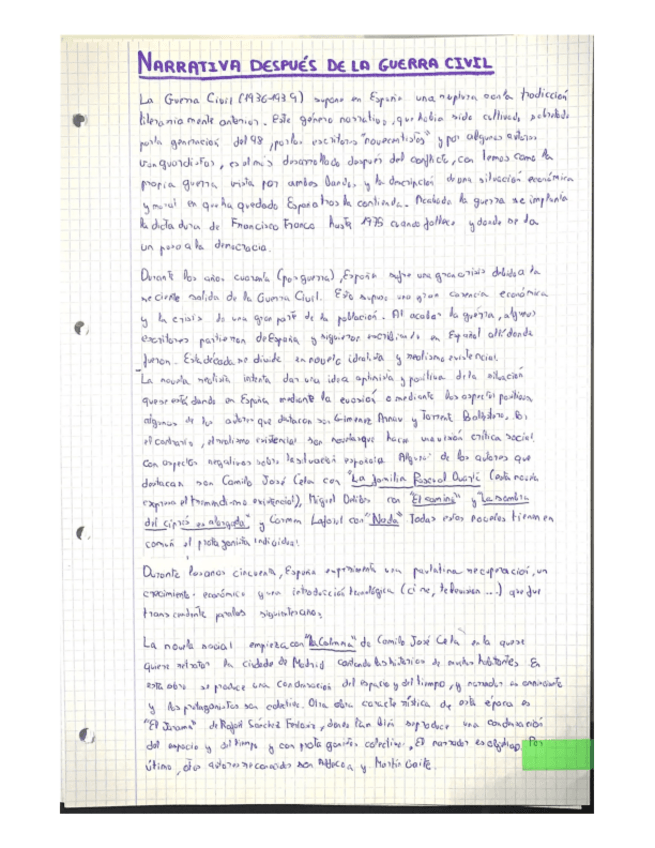 NARRATIVA DESPUÉS DE LA GUERRA CIVIL
La Guerra Civil (1936-1939) supuso en España una ruptura con la tradicción
literaria mente anterior. Este género narrativo, que había sido cultivado, sobretodo
por la generación del 98, por los escritores "novecentistas" y por algunos autores
vanguardistas, es el más desarrollado después del conflicto, con temas como la
propia guerra vista por ambos bandos, y la descripción de una situación económica
y moral en que ha quedado España tras la contienda. Acabada la guerra se implanta
la dictadura de Francisco Franco hasta 1975 cuando fallece y donde se da
un paso a la democracia.
Durante los años cuarenta (posguerra), España sufre una gran crisis debido a la
reciente salida de la Guerra Civil. Esto supuso una gran carencia económica
y la crisis de una gran parte de la población. Al acabar la guerra, algunos
escritores partieron de España y siguieron escribiendo en Español allí donde
fueron. Esta década se divide en novela idealista y realismo existencial.
La novela intenta dar una idea optimista y positiva de la situación
que se está dando en España mediante la evasión o mediante los aspectos positivos
algunos de los autores que destacan son Gimenez Arnau y Torrente Ballester, Por
el contrario, el realismo existencial son novelas que hacen una visión crítica social
con aspectos negativos sobre la situación española. Algunos de los autores que
destacan son Camilo José Cela con "La familia Pascual Duarte" (esta novela
expresa el tremendismo existencial), Miguel Delibes con "El camino" y "La sombra
del ciprés es alargada" y Carmen Laforet con "Nada" Todas estas novelas tienen en
común el protagonista individual.
Durante los años cincuenta, España experimenta una paulatina recuperación, un
crecimiento económico y una introducción tecnológica (cine, televisión...) que fue
transcendente para los siguientes años.
La novela social empieza con "La Colmena" de Camilo José Cela en la que se
quiere retratar la ciudad de Madrid contando las historias de muchos habitantes. En
esta obra se produce una condensación del espacio y del tiempo, y narrador es omnisciente
y los protagonistas son colectivos. Otra obra característica de esta época es
"El Jarama" de Rafael Sánchez Ferlosio, donde también se produce una condensación
del espacio y del tiempo y con protagonistas colectivos, El narrador es objetivo. Por
último, otros autores reconocidos son Aldecoa y Martín Gaite.